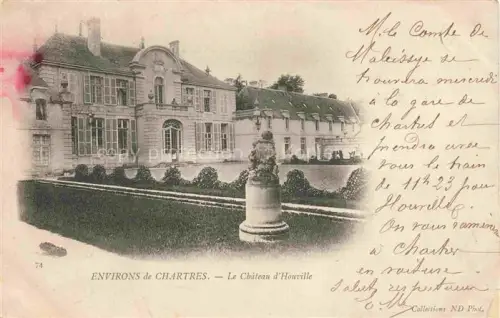 M. le Comte de
Maleissye se
trouvera mercredi
à la gare de
Chartres et
prendra avec
vous le train
de 11h23 pour
Houville.
On vous ramènera
à Chartres
en voiture
Salut respectueux
74
ENVIRONS de CHARTRES. — Le Château d'Houville
Collections ND Phot.